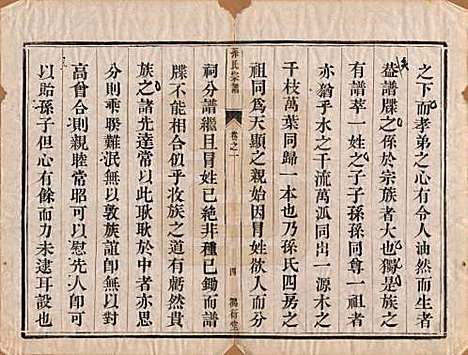 之下而孝弟之心有令人油然而生者
益譜牒之係於宗族者大也獨是族之
有譜萃一姓之子子孫孫同尊一祖者
亦猶乎水之千流萬派同出一源木之
千枝萬葉同歸一本也乃孫氏四房之
祖同為天顯之說始因冒姓欲人而分
孫氏宗譜
卷之一
四
祠分譜繼且冒姓已絕非種已鋤而譜
牒不能相合似乎收族之道有虧然貴
族之諸先達常以此耿耿於中者亦思
分則乖睽難泯無以敦族誼卽無以慰
高曾合則親睦常昭可以慰先人卽可
以貽孫子但心有餘而力未逮耳設也